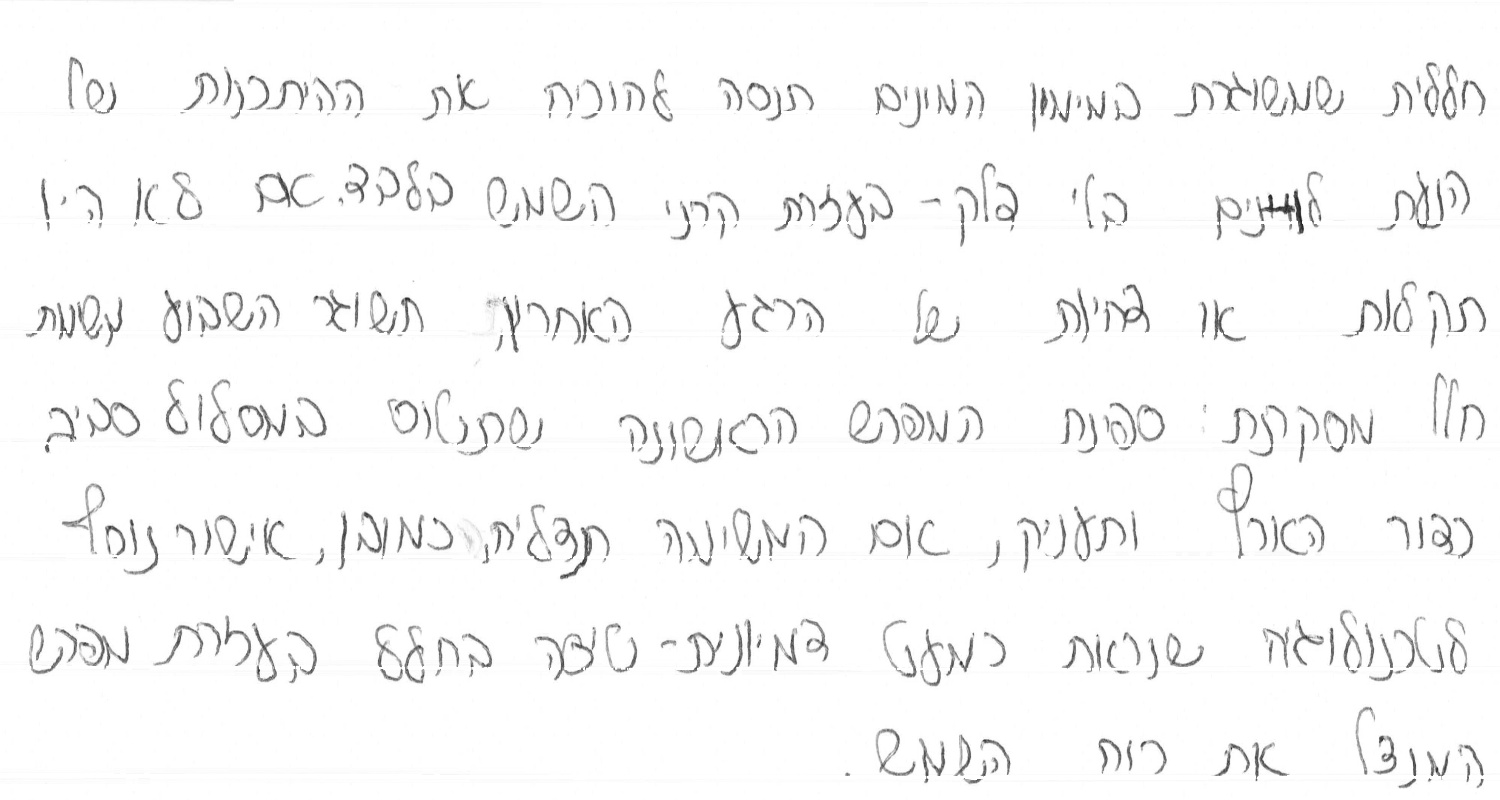 חללית שמשוגרת במימון המונים תנסה להוכיח את ההיתכנות של
הנעת לווינים בלי דלק - בעזרת קרני השמש בלבד. אם לא היו
תקלות או דחיות של הרגע האחרון, תשוגר השבוע משימת
חלל מסקרנת: ספינת המפרש הראשונה שתשוט במסלול סביב
כדור הארץ ותעניק, אם המשימה תצליח, כמובן, אישור נוסף
לטכנולוגיה שנראת כמעט דמיונית - טיסה בחלל בעזרת מפרש
המנצל את רוח השמש.